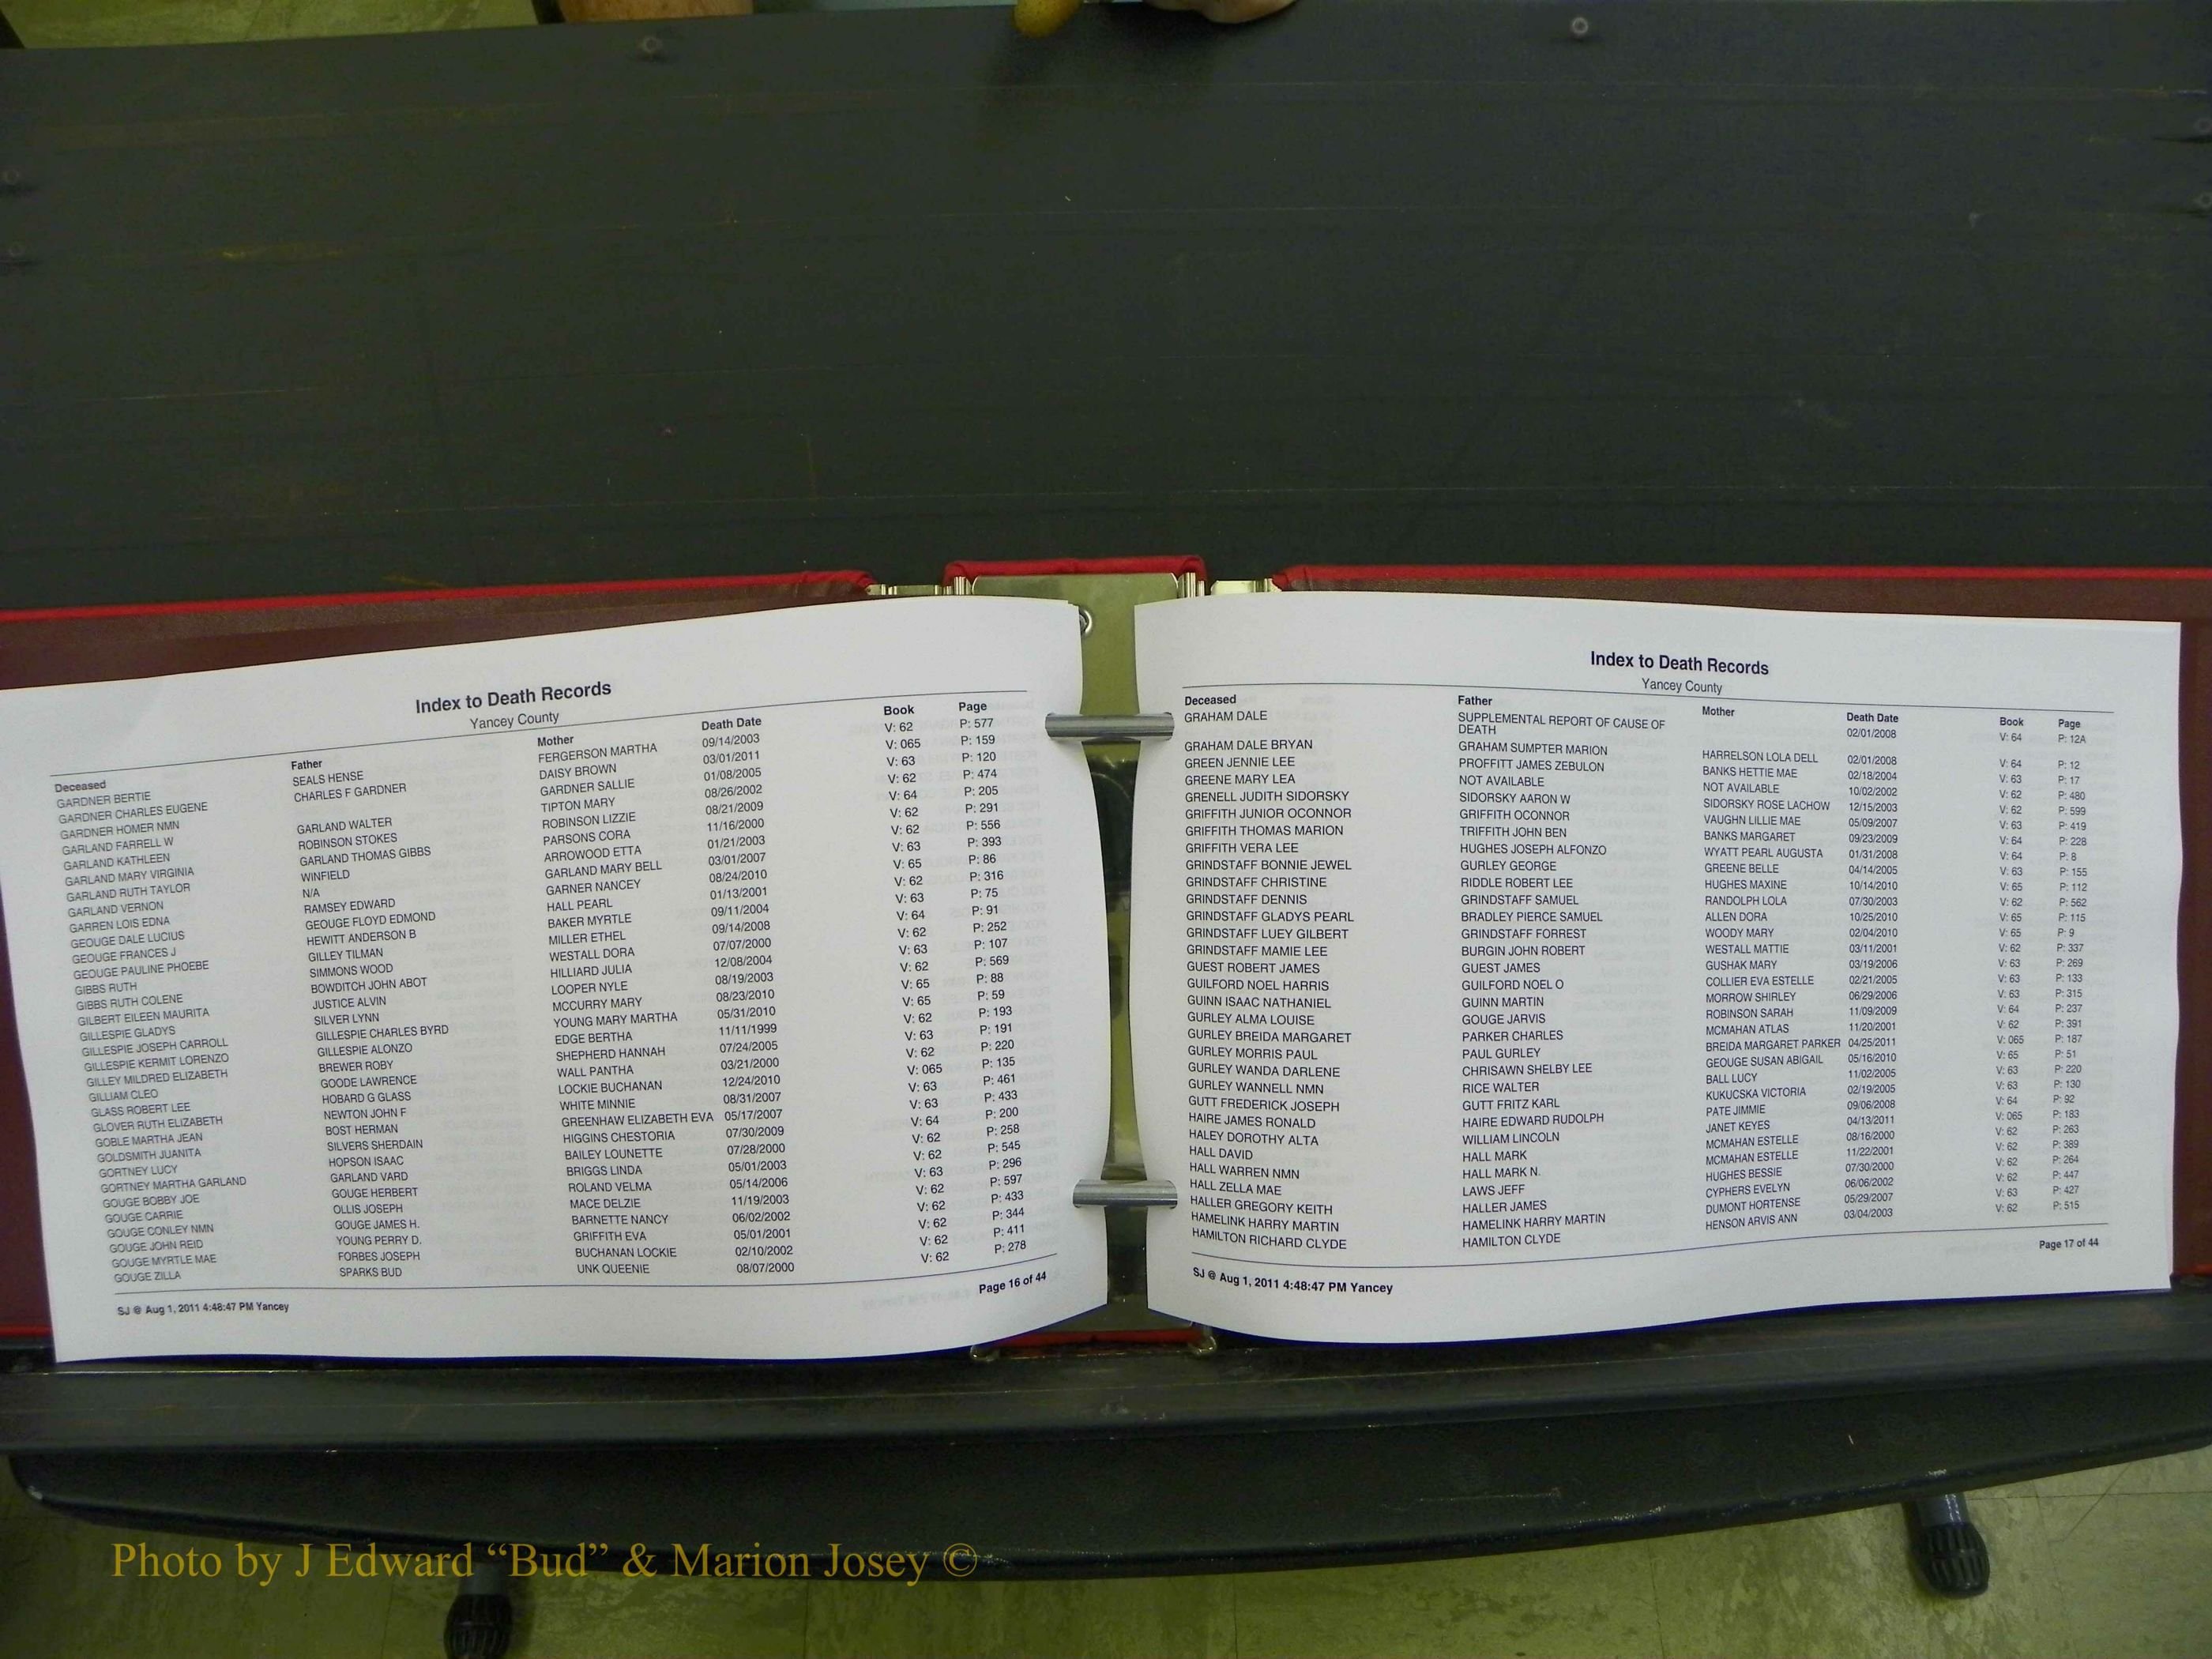 Index to Death Records
Yancey County
Deceased Father Mother Death Date Book Page
GARDNER BERTIE SEALS HENSE FERGERSON MARTHA 09/14/2003 V: 62 P: 577
GARDNER CHARLES EUGENE CHARLES F GARDNER DAISY BROWN 03/01/2011 V: 065 P: 159
GARDNER HOMER NMN GARDNER SALLIE 01/08/2005 V: 63 P: 120
GARLAND FARRELL W GARLAND WALTER TIPTON MARY 08/26/2002 V: 62 P: 474
GARLAND KATHLEEN ROBINSON STOKES ROBINSON LIZZIE 08/21/2009 V: 64 P: 205
GARLAND MARY VIRGINIA GARLAND THOMAS GIBBS PARSONS CORA 11/16/2000 V: 62 P: 291
GARLAND RUTH TAYLOR WINFIELD ARROWOOD ETTA 01/21/2003 V: 62 P: 556
GARLAND VERNON N/A GARLAND MARY BELL 03/01/2007 V: 63 P: 393
GARREN LOIS EDNA RAMSEY EDWARD GARNER NANCEY 08/24/2010 V: 65 P: 86
GEOUGE DALE LUCIUS GEOUGE FLOYD EDMOND HALL PEARL 01/13/2001 V: 62 P: 316
GEOUGE FRANCES J HEWITT ANDERSON B BAKER MYRTLE 09/11/2004 V: 63 P: 75
GEOUGE PAULINE PHOEBE GILLEY TILMAN MILLER ETHEL 09/14/2008 V: 64 P: 91
GIBBS RUTH SIMMONS WOOD WESTALL DORA 07/07/2000 V: 62 P: 252
GIBBS RUTH COLENE BOWDITCH JOHN ABOT HILLIARD JULIA 12/08/2004 V: 63 P: 107
GILBERT EILEEN MAURITA JUSTICE ALVIN LOOPER NYLE 08/19/2003 V: 62 P: 569
GILLESPIE GLADYS SILVER LYNN MCCURRY MARY 08/23/2010 V: 65 P: 88
GILLESPIE JOSEPH CARROLL GILLESPIE CHARLES BYRD YOUNG MARY MARTHA 05/31/2010 V: 65 P: 59
GILLESPIE KERMIT LORENZO GILLESPIE ALONZO EDGE BERTHA 11/11/1999 V: 62 P: 193
GILLEY MILDRED ELIZABETH BREWER ROBY SHEPHERD HANNAH 07/24/2005 V: 63 P: 191
GILLIAM CLEO GOODE LAWRENCE WALL PANTHA 03/21/2000 V: 62 P: 220
GLASS ROBERT LEE HOBARD G GLASS LOCKIE BUCHANAN 12/24/2010 V: 065 P: 135
GLOVER RUTH ELIZABETH NEWTON JOHN F WHITE MINNIE 08/31/2007 V: 63 P: 461
GOBLE MARTHA JEAN BOST HERMAN GREENHAW ELIZABETH EVA 05/17/2007 V: 63 P: 433
GOLDSMITH JUANITA SILVERS SHERDAIN HIGGINS CHESTORIA 07/30/2009 V: 64 P: 200
GORTNEY LUCY HOPSON ISAAC BAILEY LOUNETTE 07/28/2000 V: 62 P: 258
GORTNEY MARTHA GARLAND GARLAND VARD BRIGGS LINDA 05/01/2003 V: 62 P: 545
GOUGE BOBBY JOE GOUGE HERBERT ROLAND VELMA 05/14/2006 V: 63 P: 296
GOUGE CARRIE OLLIS JOSEPH MACE DELZIE 11/19/2003 V: 62 P: 597
GOUGE CONLEY NMN GOUGE JAMES H. BARNETTE NANCY 06/02/2002 V: 62 P: 433
GOUGE JOHN REID YOUNG PERRY D. GRIFFITH EVA 05/01/2001 V: 62 P: 344
GOUGE MYRTLE MAE FORBES JOSEPH BUCHANAN LOCKIE 02/10/2002 V: 62 P: 411
GOUGE ZILLA SPARKS BUD UNK QUEENIE 08/07/2000 V: 62 P: 278
SJ @ Aug 1, 2011 4:48:47 PM Yancey Page 16 of 44
Index to Death Records
Yancey County
Deceased Father Mother Death Date Book Page
GRAHAM DALE SUPPLEMENTAL REPORT OF CAUSE OF 02/01/2008 V: 64 P: 12A
DEATH
GRAHAM DALE BRYAN GRAHAM SUMPTER MARION HARRELSON LOLA DELL 02/01/2008 V: 64 P: 12
GREEN JENNIE LEE PROFFITT JAMES ZEBULON BANKS HETTIE MAE 02/18/2004 V: 63 P: 17
GREENE MARY LEA NOT AVAILABLE NOT AVAILABLE 10/02/2002 V: 62 P: 480
GRENELL JUDITH SIDORSKY SIDORSKY AARON W SIDORSKY ROSE LACHOW 12/15/2003 V: 62 P: 599
GRIFFITH JUNIOR OCONNOR GRIFFITH OCONNOR VAUGHN LILLIE MAE 05/09/2007 V: 63 P: 419
GRIFFITH THOMAS MARION TRIFFITH JOHN BEN BANKS MARGARET 09/23/2009 V: 64 P: 228
GRIFFITH VERA LEE HUGHES JOSEPH ALFONZO WYATT PEARL AUGUSTA 01/31/2008 V: 64 P: 8
GRINDSTAFF BONNIE JEWEL GURLEY GEORGE GREENE BELLE 04/14/2005 V: 63 P: 155
GRINDSTAFF CHRISTINE RIDDLE ROBERT LEE HUGHES MAXINE 10/14/2010 V: 65 P: 112
GRINDSTAFF DENNIS GRINDSTAFF SAMUEL RANDOLPH LOLA 07/30/2003 V: 62 P: 562
GRINDSTAFF GLADYS PEARL BRADLEY PIERCE SAMUEL ALLEN DORA 10/25/2010 V: 65 P: 115
GRINDSTAFF LUEY GILBERT GRINDSTAFF FORREST WOODY MARY 02/04/2010 V: 65 P: 9
GRINDSTAFF MAMIE LEE BURGIN JOHN ROBERT WESTALL MATTIE 03/11/2001 V: 62 P: 337
GUEST ROBERT JAMES GUEST JAMES GUSHAK MARY 03/19/2006 V: 63 P: 269
GUILFORD NOEL HARRIS GUILFORD NOEL O COLLIER EVA ESTELLE 02/21/2005 V: 63 P: 133
GUINN ISAAC NATHANIEL GUINN MARTIN MORROW SHIRLEY 06/29/2006 V: 63 P: 315
GURLEY ALMA LOUISE GOUGE JARVIS ROBINSON SARAH 11/09/2009 V: 64 P: 237
GURLEY BREIDA MARGARET PARKER CHARLES MCMAHAN ATLAS 11/20/2001 V: 62 P: 391
GURLEY MORRIS PAUL PAUL GURLEY BREIDA MARGARET PARKER 04/25/2011 V: 065 P: 187
GURLEY WANDA DARLENE CHRISAWN SHELBY LEE GEOUGE SUSAN ABIGAIL 05/16/2010 V: 65 P: 51
GURLEY WANNELL NMN RICE WALTER BALL LUCY 11/02/2005 V: 63 P: 220
GUTT FREDERICK JOSEPH GUTT FRITZ KARL KUKUCSKA VICTORIA 02/19/2005 V: 63 P: 130
HAIRE JAMES RONALD HAIRE EDWARD RUDOLPH PATE JIMMIE 09/06/2008 V: 64 P: 92
HALEY DOROTHY ALTA WILLIAM LINCOLN JANET KEYES 04/13/2011 V: 065 P: 183
HALL DAVID HALL MARK MCMAHAN ESTELLE 08/16/2000 V: 62 P: 263
HALL WARREN NMN HALL MARK N. MCMAHAN ESTELLE 11/22/2001 V: 62 P: 389
HALL ZELLA MAE LAWS JEFF HUGHES BESSIE 07/30/2000 V: 62 P: 264
HALLER GREGORY KEITH HALLER JAMES CYPHERS EVELYN 06/06/2002 V: 62 P: 447
HAMELINK HARRY MARTIN HAMELINK HARRY MARTIN DUMONT HORTENSE 05/29/2007 V: 63 P: 427
HAMILTON RICHARD CLYDE HAMILTON CLYDE HENSON ARVIS ANN 03/04/2003 V: 62 P: 515
SJ @ Aug 1, 2011 4:48:47 PM Yancey Page 17 of 44
Photo by J Edward “Bud” & Marion Josey ©